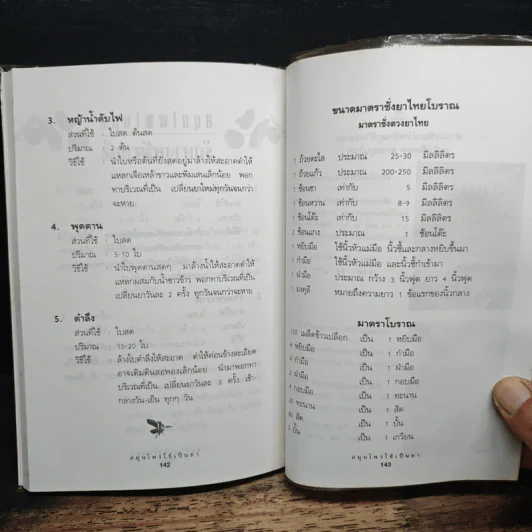 3. หญ้าน้ำดับไฟ
ส่วนที่ใช้ : ใบสด ต้นสด
ปริมาณ : 2 ต้น
วิธีใช้ : นำใบหรือต้นที่ยังสดอยู่มาล้างให้สะอาดตำให้
แหลกเจือเหล้าขาวและพิมเสนเล็กน้อย พอก
ทาบริเวณที่เป็น เปลี่ยนยาใหม่ทุกวันจนกว่า
จะหาย
4. พุดตาน
ส่วนที่ใช้ : ใบสด
ปริมาณ : 5-10 ใบ
วิธีใช้ : นำใบพุดตานสดๆ มาล้างน้ำให้สะอาดตำให้
แหลกผสมกับน้ำซาวข้าว พอกทาบริเวณที่เป็น
เปลี่ยนยาวันละ 2 ครั้ง ทุกวันจนกว่าจะหาย
5. ตำลึง
ส่วนที่ใช้ : ใบสด
ปริมาณ : 15-20 ใบ
วิธีใช้ : ล้างใบตำลึงให้สะอาด ตำให้ค่อนข้างละเอียด
อาจเติมดินสอพองเล็กน้อย นำมาพอกทา
บริเวณที่เป็น เปลี่ยนยาวันละ 3 ครั้ง เช้า-
กลางวัน-เย็น ทุกๆ วัน
สมุนไพรใช้เป็นยา
142
ขนาดมาตราชั่งยาไทยโบราณ
มาตราชั่งตวงยาไทย
1 ถ้วยตะไล ประมาณ 25-30 มิลลิลิตร
1 ถ้วยแก้ว ประมาณ 200-250 มิลลิลิตร
1 ช้อนชา เท่ากับ 5 มิลลิลิตร
1 ช้อนหวาน เท่ากับ 8-9 มิลลิลิตร
1 ช้อนโต๊ะ เท่ากับ 15 มิลลิลิตร
2 ช้อนแกง ประมาณ 1 ช้อนโต๊ะ
1 หยิบมือ ใช้นิ้วหัวแม่มือ นิ้วชี้และกลางหยิบขึ้นมา
1 กำมือ ใช้นิ้วหัวแม่มือ และนิ้วชี้กำเข้ามา
1 ฝ่ามือ ประมาณ กว้าง 3 นิ้วฟุต ยาว 4 นิ้วฟุต
1 องคุลี หมายถึงความยาว 1 ข้อแรกของนิ้วกลาง
มาตราโบราณ
เมล็ดข้าวเปลือก เป็น 1 หยิบมือ
4 หยิบมือ เป็น 1 กำมือ
กำมือ เป็น 1 ฝ่ามือ
ฝ่ามือ เป็น 1 กอบมือ
กอบมือ เป็น 1 ทะนาน
20 ทะนาน เป็น 1 สัด
สัด เป็น 1 บั้น
2 บั้น เป็น 1 เกวียน
สมุนไพรใช้เป็นยา
143